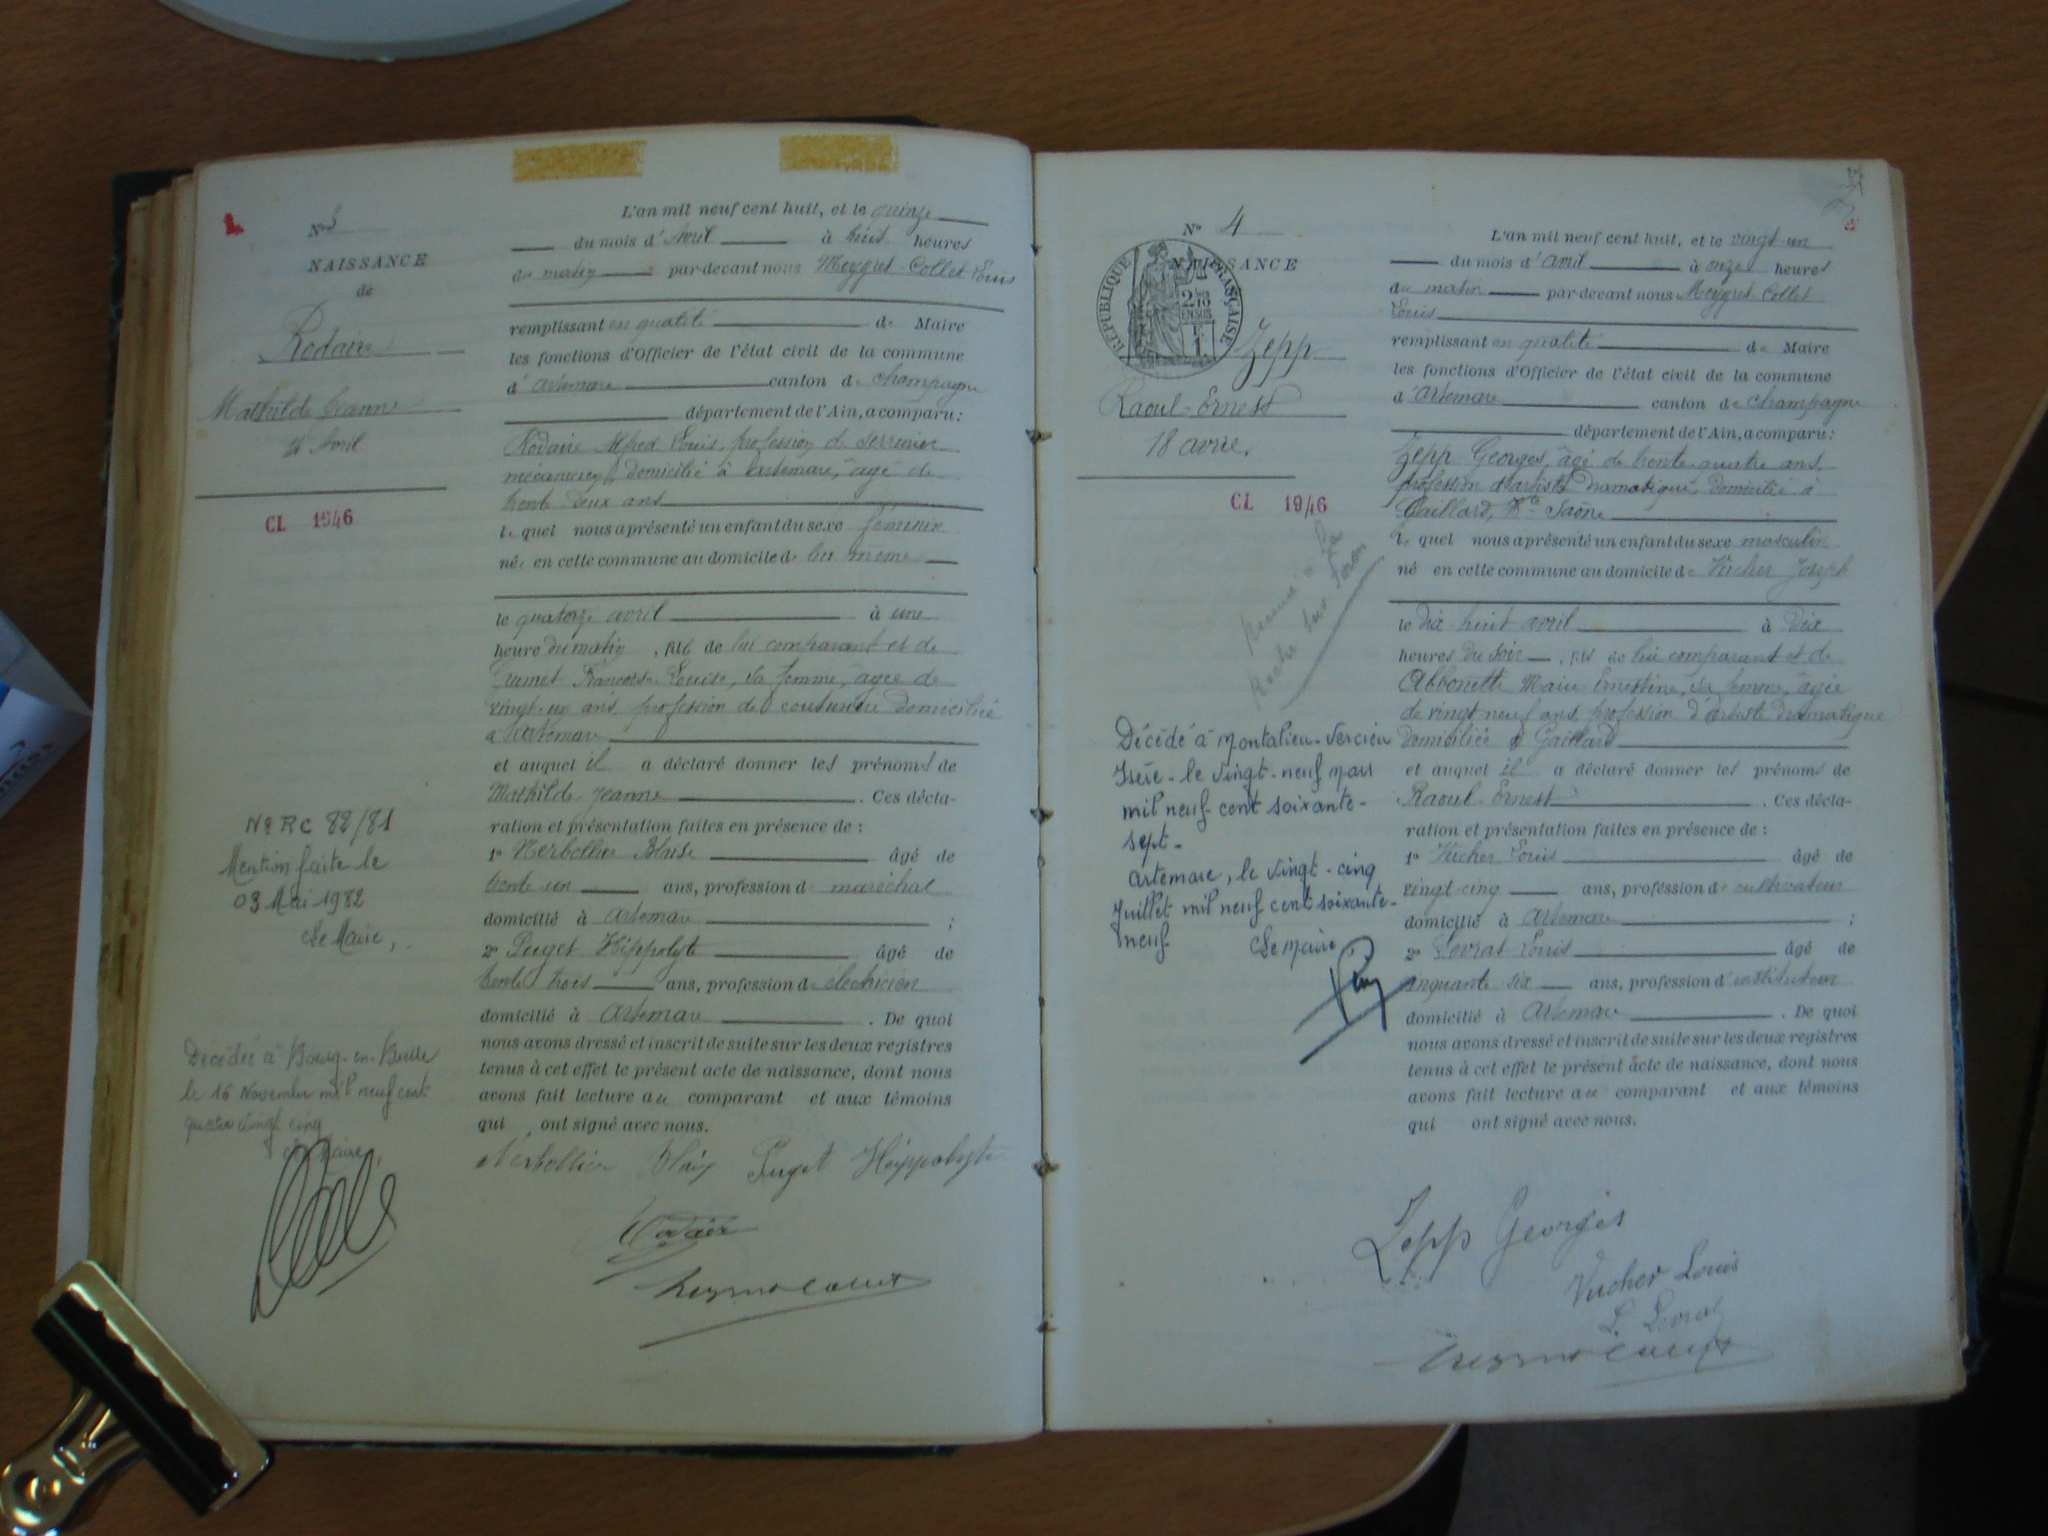 N° 3
NAISSANCE
de
Rodaire
Mathilde Jeanne
14 Avril
CL 1946
N° RC 82/81
Mention faite le
03 Mai 1982
Le Maire,
Décédée à Bourg-en-Bresse
le 16 Novembre mil neuf cent
quatre vingt cinq
Le Maire,
L'an mil neuf cent huit, et le quinze
du mois d'Avril à huit heures
du matin par-devant nous Meygret-Collet Louis
remplissant en qualité de Maire
les fonctions d'Officier de l'état civil de la commune
d'Artemare canton de Champagne
département de l'Ain, a comparu :
Rodaire Alfred Louis, profession de serrurier
mécanicien, domicilié à Artemare, âgé de
trente deux ans
lequel nous a présenté un enfant du sexe féminin
née en cette commune au domicile de lui même
le quatorze avril à une
heure du matin, fille de lui comparant et de
Françoise Louise, sa femme, âgée de
ans, profession de couturière domiciliée
à Artemare
et auquel il a déclaré donner les prénoms de
Mathilde-Jeanne. Ces décla-
ration et présentation faites en présence de :
1° Nerbollier Blaise âgé de
trente un ans, profession de maréchal
domicilié à Artemare ;
2° Puget Hippolyte âgé de
trente trois ans, profession d'électricien
domicilié à Artemare. De quoi
nous avons dressé et inscrit de suite sur les deux registres
tenus à cet effet le présent acte de naissance, dont nous
avons fait lecture au comparant et aux témoins
qui ont signé avec nous.
Nerbollier Blaise Puget Hippolyte
Rodaire
N° 4
NAISSANCE
RÉPUBLIQUE FRANÇAISE
Zepp
Raoul-Ernest
18 avril
CL 1946
Reconnu à La
Roche sur Foron
Décédé à Montalieu-Vercieu
Isère - le vingt-neuf mars
mil neuf cent soixante-
sept -
Artemare, le vingt-cinq
Juillet mil neuf cent soixante-
neuf Le Maire
L'an mil neuf cent huit, et le vingt-un
du mois d'avril à onze heures
du matin par-devant nous Meygret-Collet
Louis
remplissant en qualité de Maire
les fonctions d'Officier de l'état civil de la commune
d'Artemare canton de Champagne
département de l'Ain, a comparu :
Zepp Georges, âgé de trente-quatre ans,
profession d'artiste dramatique, domicilié à
Gaillard, Hte Saône
lequel nous a présenté un enfant du sexe masculin
né en cette commune au domicile de Vucher Joseph
le dix huit avril à dix
heures du soir, fils de lui comparant et de
Marie Ernestine, sa femme, âgée
de vingt neuf ans, profession d'artiste dramatique
domiciliée à Gaillard
et auquel il a déclaré donner les prénoms de
Raoul-Ernest. Ces décla-
ration et présentation faites en présence de :
1° Vucher Louis âgé de
vingt-cinq ans, profession de cultivateur
domicilié à Artemare ;
2° Levrat Louis âgé de
cinquante six ans, profession d'instituteur
domicilié à Artemare. De quoi
nous avons dressé et inscrit de suite sur les deux registres
tenus à cet effet le présent acte de naissance, dont nous
avons fait lecture au comparant et aux témoins
qui ont signé avec nous.
Zepp Georges
Vucher Louis
L. Levrat